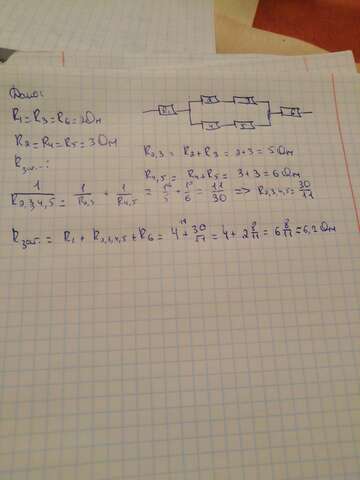 Дано:
R1 = R3 = R6 = 2Ом
R2 = R4 = R5 = 3Ом
Rзаг. - ?
R1 2 3 4 5 6
R2,3 = R2 + R3 = 2+3 = 5Ом
R4,5 = R4 + R5 = 3+3 = 6Ом
1/R2,3,4,5 = 1/R2,3 + 1/R4,5 = 1/5 + 1/6 = 11/30 => R2,3,4,5 = 30/11
Rзаг. = R1 + R2,3,4,5 + R6 = 4 + 30/11 = 4 + 2 8/11 = 6 8/11 = 6,2 Ом